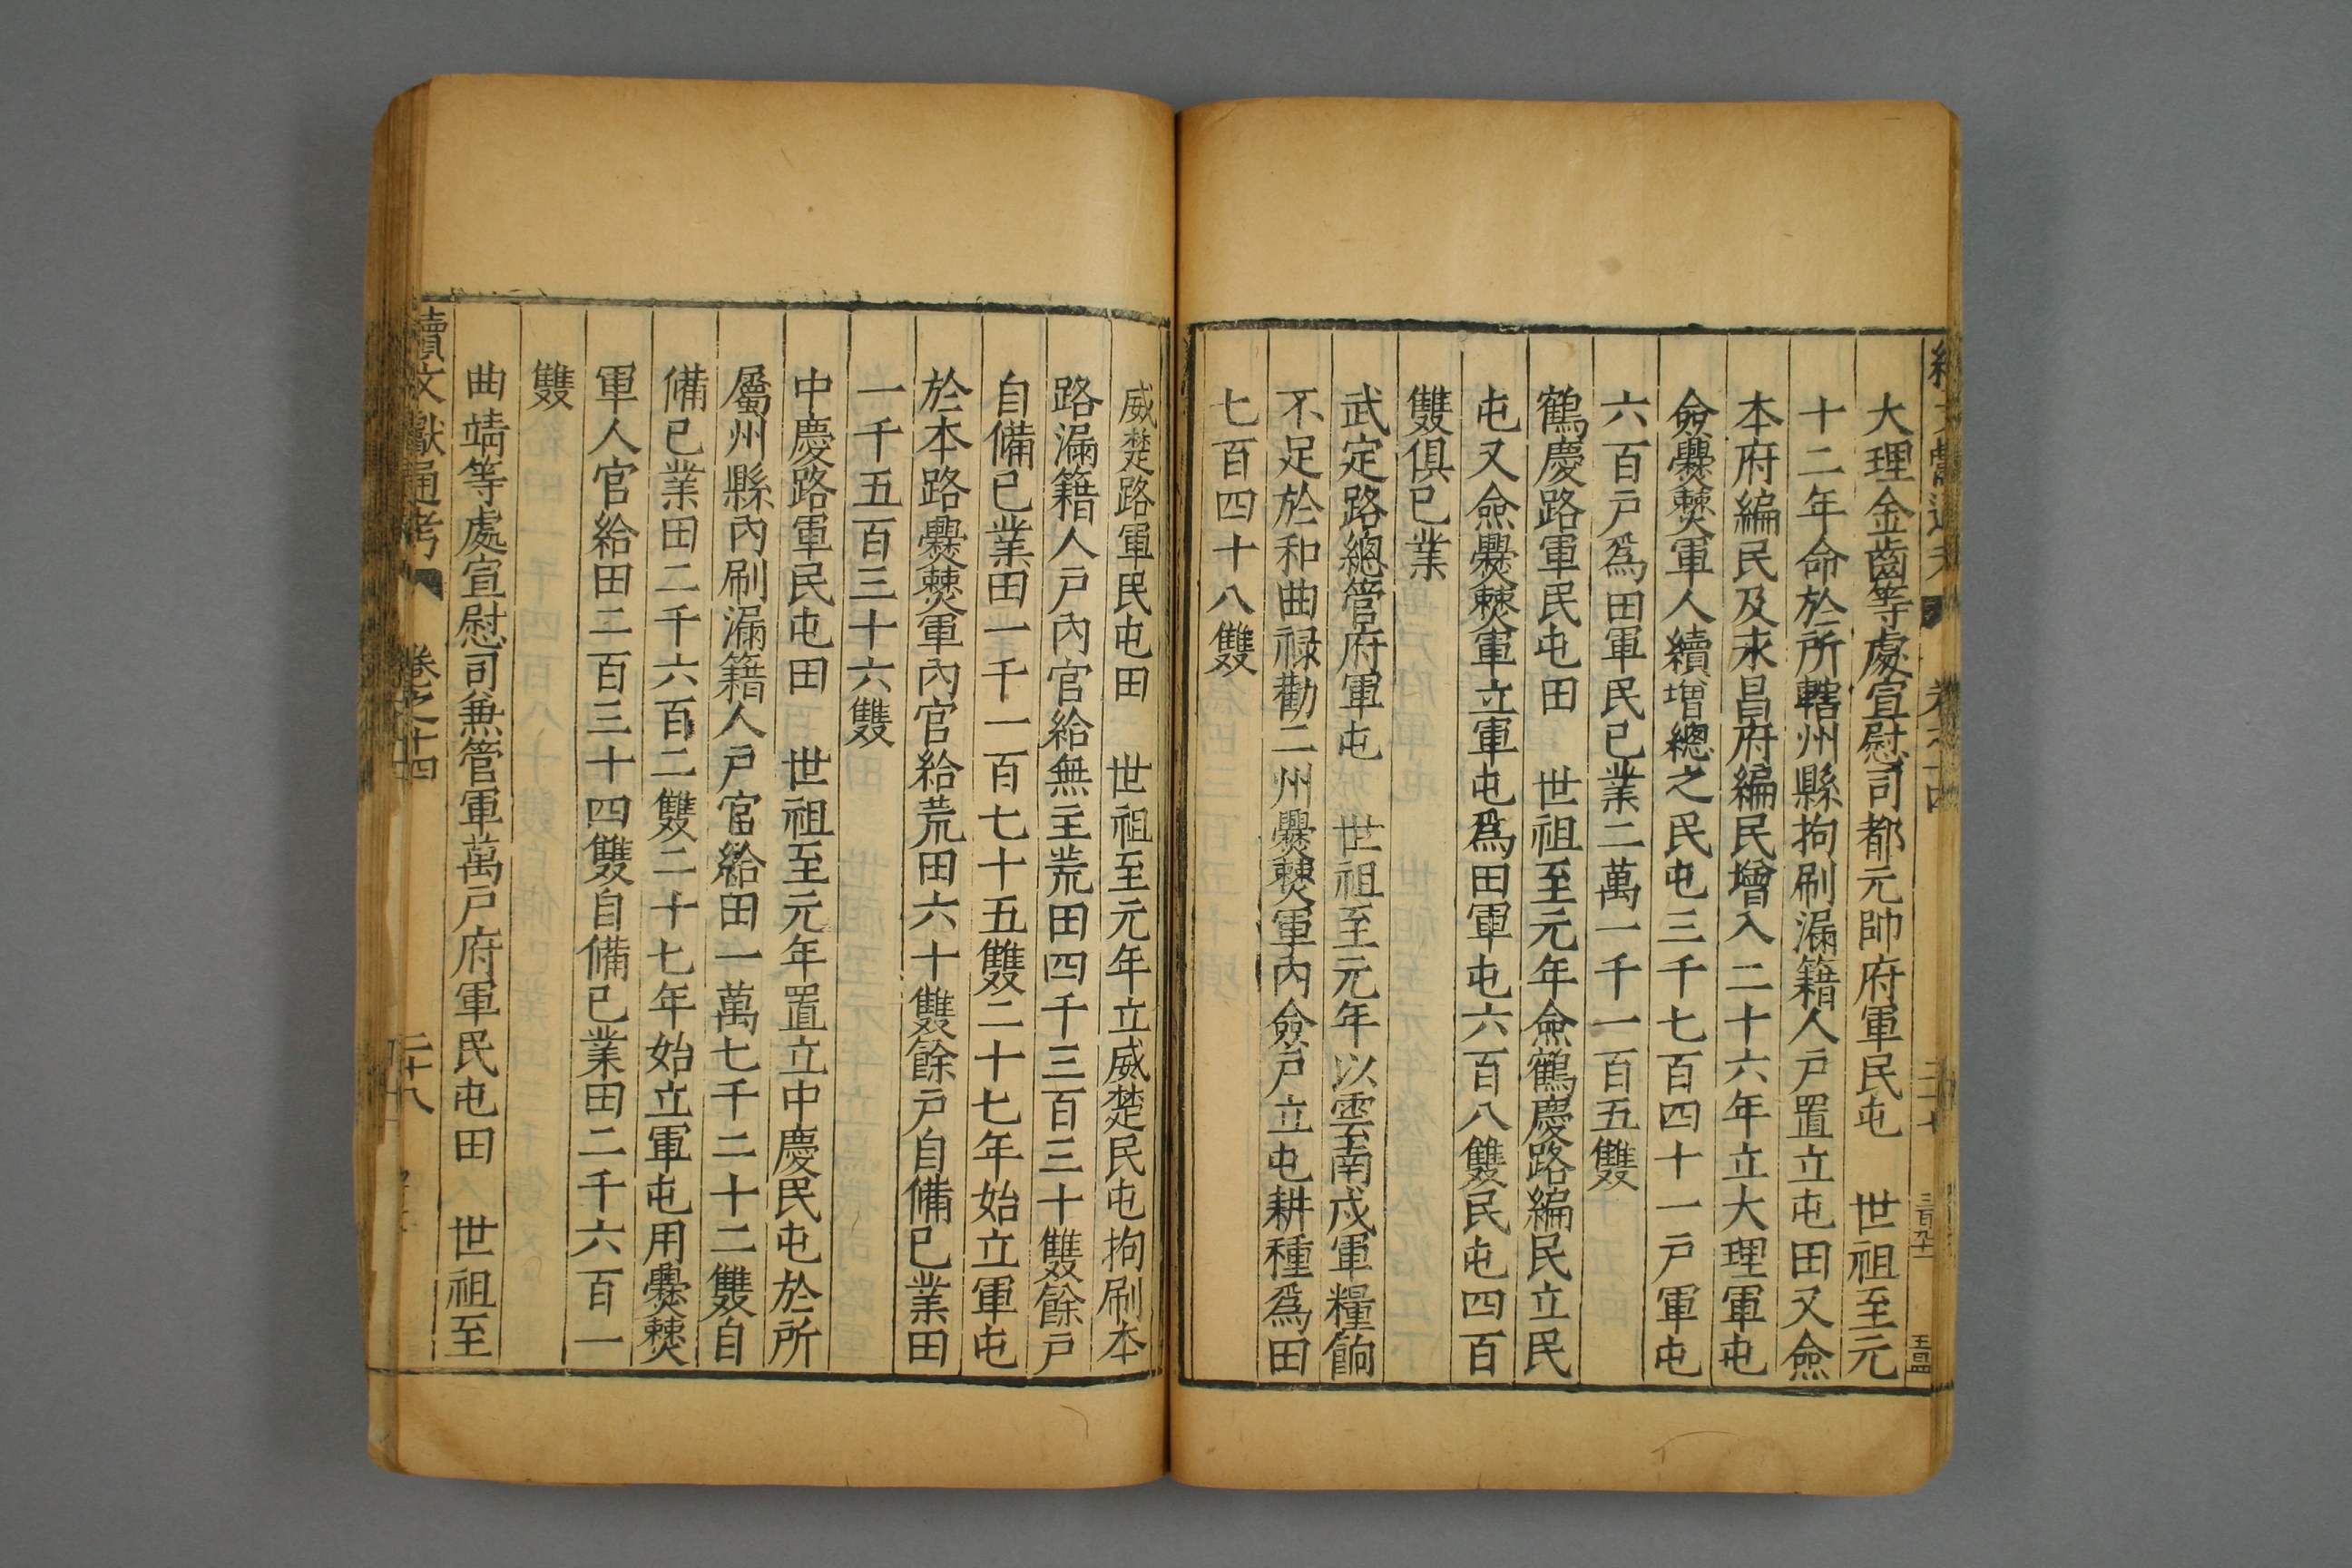 大理金齒等處宣慰司都元帥府軍民屯　世祖至元
十二年命於所轄州縣拘刷漏籍人戶置立屯田又僉
本府編民及永昌府編民增入二十六年立大理軍屯
僉爨僰軍人續增總之民屯三千七百四十一戶軍屯
六百戶爲田軍民已業二萬一千一百五雙
鶴慶路軍民屯田　世祖至元年僉鶴慶路編民立民
屯又僉爨僰軍立軍屯爲田軍屯六百八雙民屯四百
雙俱已業
武定路總管府軍屯　世祖至元年以雲南戍軍糧餉
不足於和曲禄勸二州爨僰軍內僉戶立屯耕種爲田
七百四十八雙
威楚路軍民屯田　世祖至元年立威楚民屯拘刷本
路漏籍人戶內官給無主荒田四千三百三十雙餘戶
自備已業田一千一百七十五雙二十七年始立軍屯
於本路爨僰軍內官給荒田六十雙餘戶自備已業田
一千五百三十六雙
中慶路軍民屯田　世祖至元年置立中慶民屯於所
屬州縣內刷漏籍人戶官給田一萬七千二十二雙自
備已業田二千六百二雙二十七年始立軍屯用爨僰
軍人官給田二百三十四雙自備已業田二千六百一
雙
曲靖等處宣慰司兼管軍萬戶府軍民屯田　世祖至
續文獻通考　卷之十四　二十八